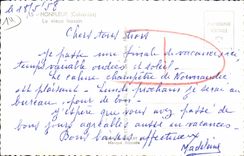 le 18/5/58
15 - HONFLEUR (Calvados)
Le vieux bassin
Chers tous trois
Je passe une fin de vacances
temps variable ondées et soleil.
Le calme champêtre de Normandie
est plaisant - Lundi prochain je serai au
bureau "pour de bon" -
J'espère que vous avez passé de
bons jours agréables aussi en vacances -
Bons baisers affectueux
Madeleine